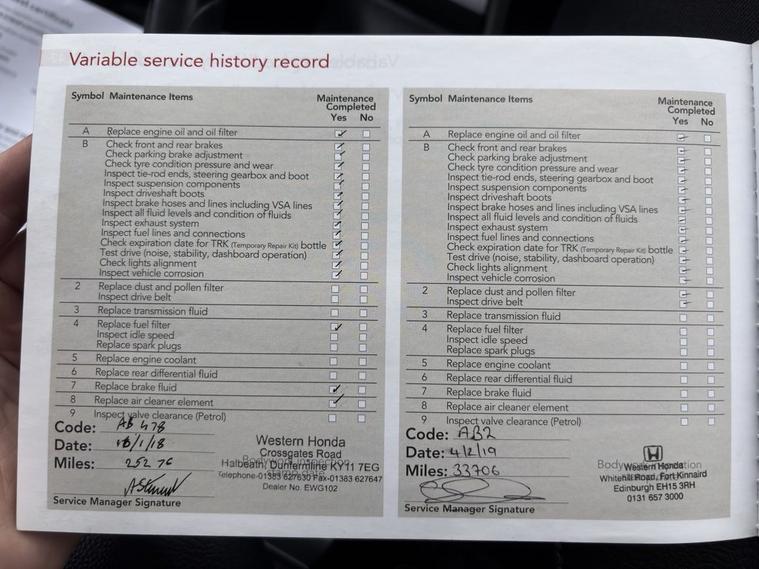 Variable service history record
Symbol Maintenance Items Maintenance Completed
Yes No
A Replace engine oil and oil filter
B Check front and rear brakes
Check parking brake adjustment
Check tyre condition pressure and wear
Inspect tie-rod ends, steering gearbox and boot
Inspect suspension components
Inspect driveshaft boots
Inspect brake hoses and lines including VSA lines
Inspect all fluid levels and condition of fluids
Inspect exhaust system
Inspect fuel lines and connections
Check expiration date for TRK (Temporary Repair Kit) bottle
Test drive (noise, stability, dashboard operation)
Check lights alignment
Inspect vehicle corrosion
2 Replace dust and pollen filter
Inspect drive belt
3 Replace transmission fluid
4 Replace fuel filter
Inspect idle speed
Replace spark plugs
5 Replace engine coolant
6 Replace rear differential fluid
7 Replace brake fluid
8 Replace air cleaner element
9 Inspect valve clearance (Petrol)
Code: AB 478
Date: 18/1/18
Miles: 252 76
Service Manager Signature
Western Honda
Crossgates Road
Halbeath, Dunfermline KY11 7EG
Telephone-01383 627630 Fax-01383 627647
Dealer No. EWG102
Symbol Maintenance Items Maintenance Completed
Yes No
A Replace engine oil and oil filter
B Check front and rear brakes
Check parking brake adjustment
Check tyre condition pressure and wear
Inspect tie-rod ends, steering gearbox and boot
Inspect suspension components
Inspect driveshaft boots
Inspect brake hoses and lines including VSA lines
Inspect all fluid levels and condition of fluids
Inspect exhaust system
Inspect fuel lines and connections
Check expiration date for TRK (Temporary Repair Kit) bottle
Test drive (noise, stability, dashboard operation)
Check lights alignment
Inspect vehicle corrosion
2 Replace dust and pollen filter
Inspect drive belt
3 Replace transmission fluid
4 Replace fuel filter
Inspect idle speed
Replace spark plugs
5 Replace engine coolant
6 Replace rear differential fluid
7 Replace brake fluid
8 Replace air cleaner element
9 Inspect valve clearance (Petrol)
Code: AB2
Date: 4/2/19
Miles: 33706
Service Manager Signature
Western Honda
Whitehill Road, Fort Kinnaird
Edinburgh EH15 3RH
0131 657 3000